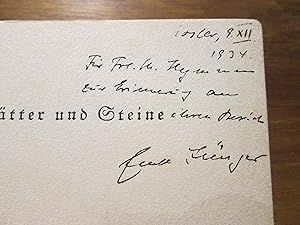 Goslar, 9. XII.
1934.
Für Frl. H. Heymann
zur Erinnerung an
ätter und Steine ihren Besuch
Ernst Jünger